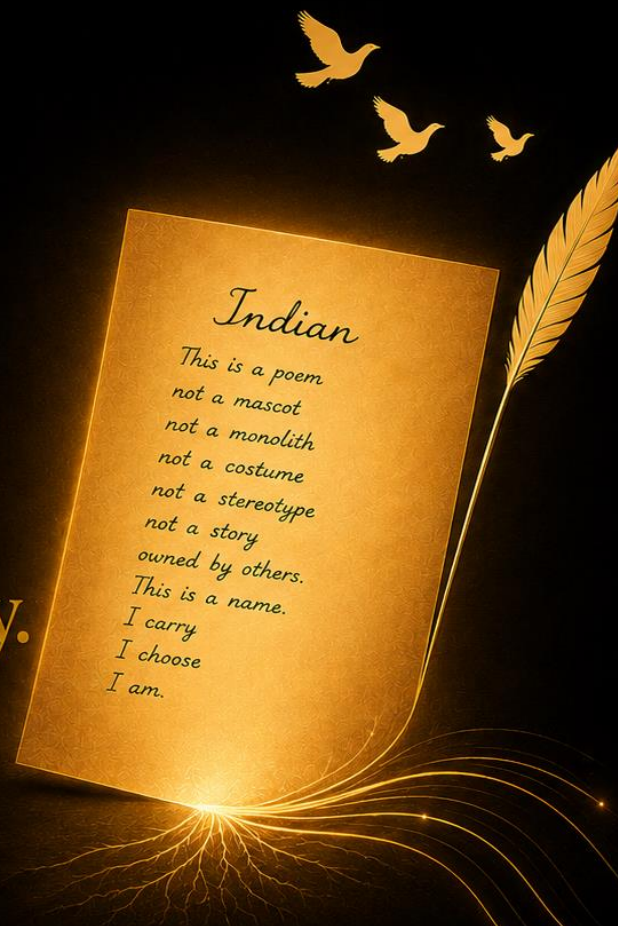 Indian
This is a poem
not a mascot
not a monolith
not a costume
not a stereotype
not a story
owned by others.
This is a name.
I carry
I choose
I am.
y.